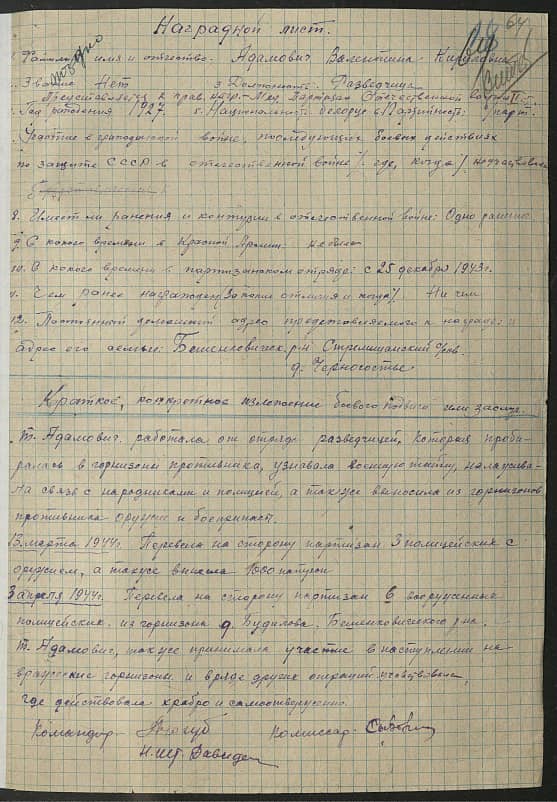 64
Наградной лист.
Фамилия имя и отчество. Адамович Валентина
Звание Нет 3 Должность: Разведчица
Представляется к прав. нагр. Партизан Отечественной войны II ст.
Год рождения 1927. г. Национальность белорус. Партийность: б/парт.
Участие в гражданской войне, последующих боевых действиях
по защите СССР в отечественной войне /где, когда/. не участвовала
8. Имеет ли ранения и контузии в отечественной войне: Одно ранение
9. С какого времени в Красной Армии: не была
10. С какого времени в партизанском отряде: с 25 декабря 1943 г.
11. Чем ранее награжден /за какие отличия и когда/. Ни чем
12. Постоянный домашний адрес представляемого к награде: и
адрес его семьи: Бешенковичск. р-н
д. Черногостье
Краткое, конкретное изложение боевого подвига или заслуг.
т. Адамович, работала от отряда разведчицей, которая проби-
ралась в горнизоны противника, узнавала военную тайну, налаживa-
ла связь с народниками и полицией, а также выносила из горнизонов
противника оружие и боеприпас.
13 марта 1944 г. Перевела на сторону партизан 3 полицейских с
оружием, а также вынесла 1000 патрон
3 апреля 1944 г. Перевела на сторону партизан 6 вооруженных
полицейских. из горнизона д. Будилова, Бешенковичского р-на.
т. Адамович, также принимала участие в наступлении на
вражеские горнизоны и в ряде других операций учавствовала,
где действовала храбро и самоотверженно.
Командир Комиссар
Н.Шт. Давиден